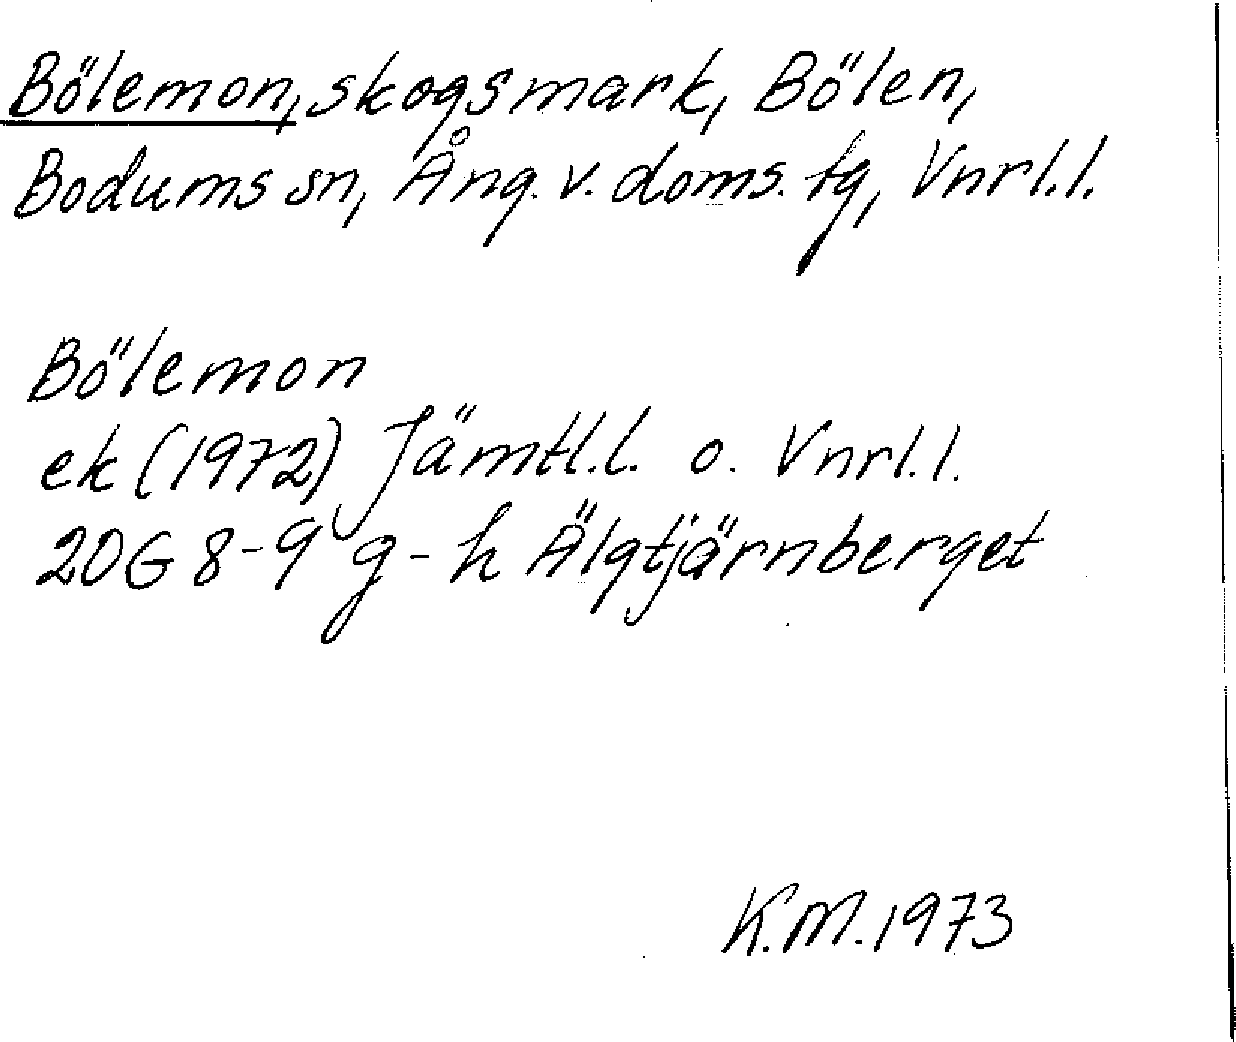 Bölemon, skogsmark, Bölen,
Bodums sn, Ång. v. doms. tg, Vnrl.l.
Bölemon
ek (1972) Jämtl.l. o. Vnrl.l.
20G 8-9 g-h Älgtjärnberget
K.M. 1973